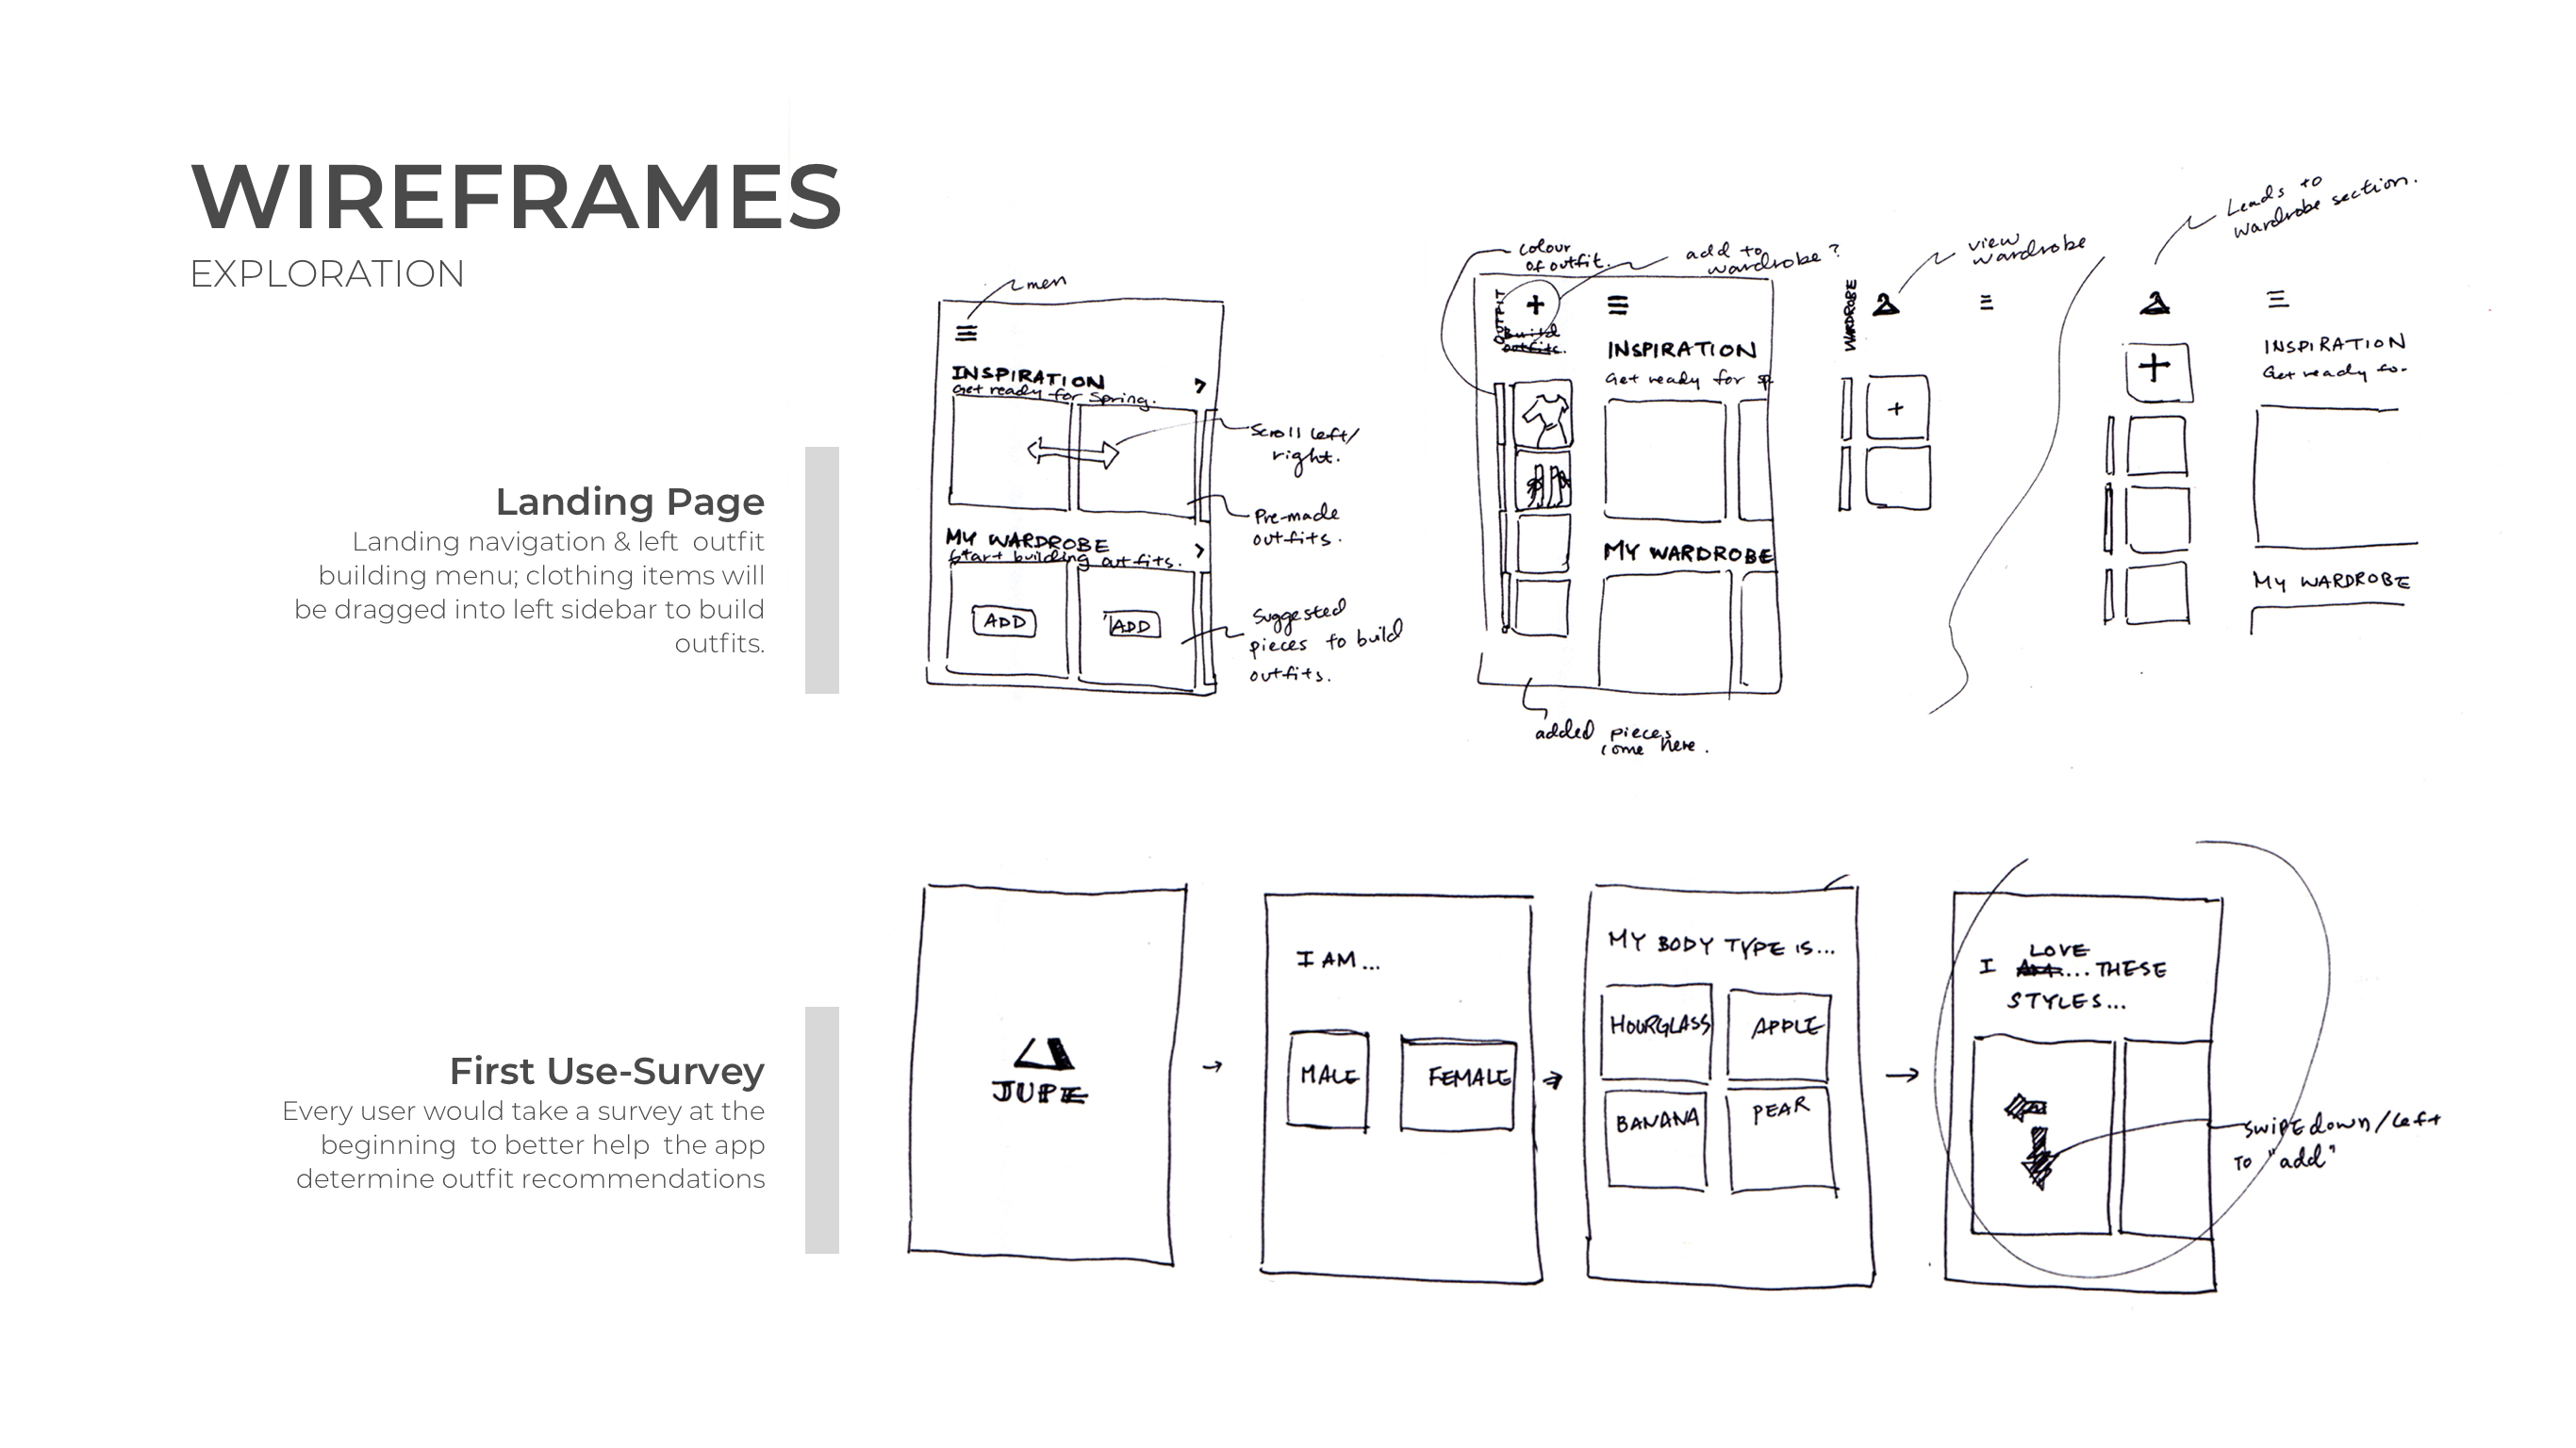 WIREFRAMES
EXPLORATION
Landing Page
Landing navigation & left outfit
building menu; clothing items will
be dragged into left sidebar to build
outfits.
men
INSPIRATION
Get ready for spring.
Scroll left/
right.
Pre-made
outfits.
MY WARDROBE
Start building outfits.
ADD
ADD
Suggested
pieces to build
outfits.
colour
of outfit.
add to
wardrobe?
OUTFIT
+
Build
outfits.
INSPIRATION
Get ready for sp
MY WARDROBE
added pieces
come here.
WARDROBE
view
wardrobe
+
Leads to
wardrobe section.
+
INSPIRATION
Get ready fo-
MY WARDROBE
First Use-Survey
Every user would take a survey at the
beginning to better help the app
determine outfit recommendations
JUPE
I AM...
MALE
FEMALE
MY BODY TYPE IS...
HOURGLASS
APPLE
BANANA
PEAR
LOVE
I ... THESE
STYLES...
SWIPE down/left
TO "add"